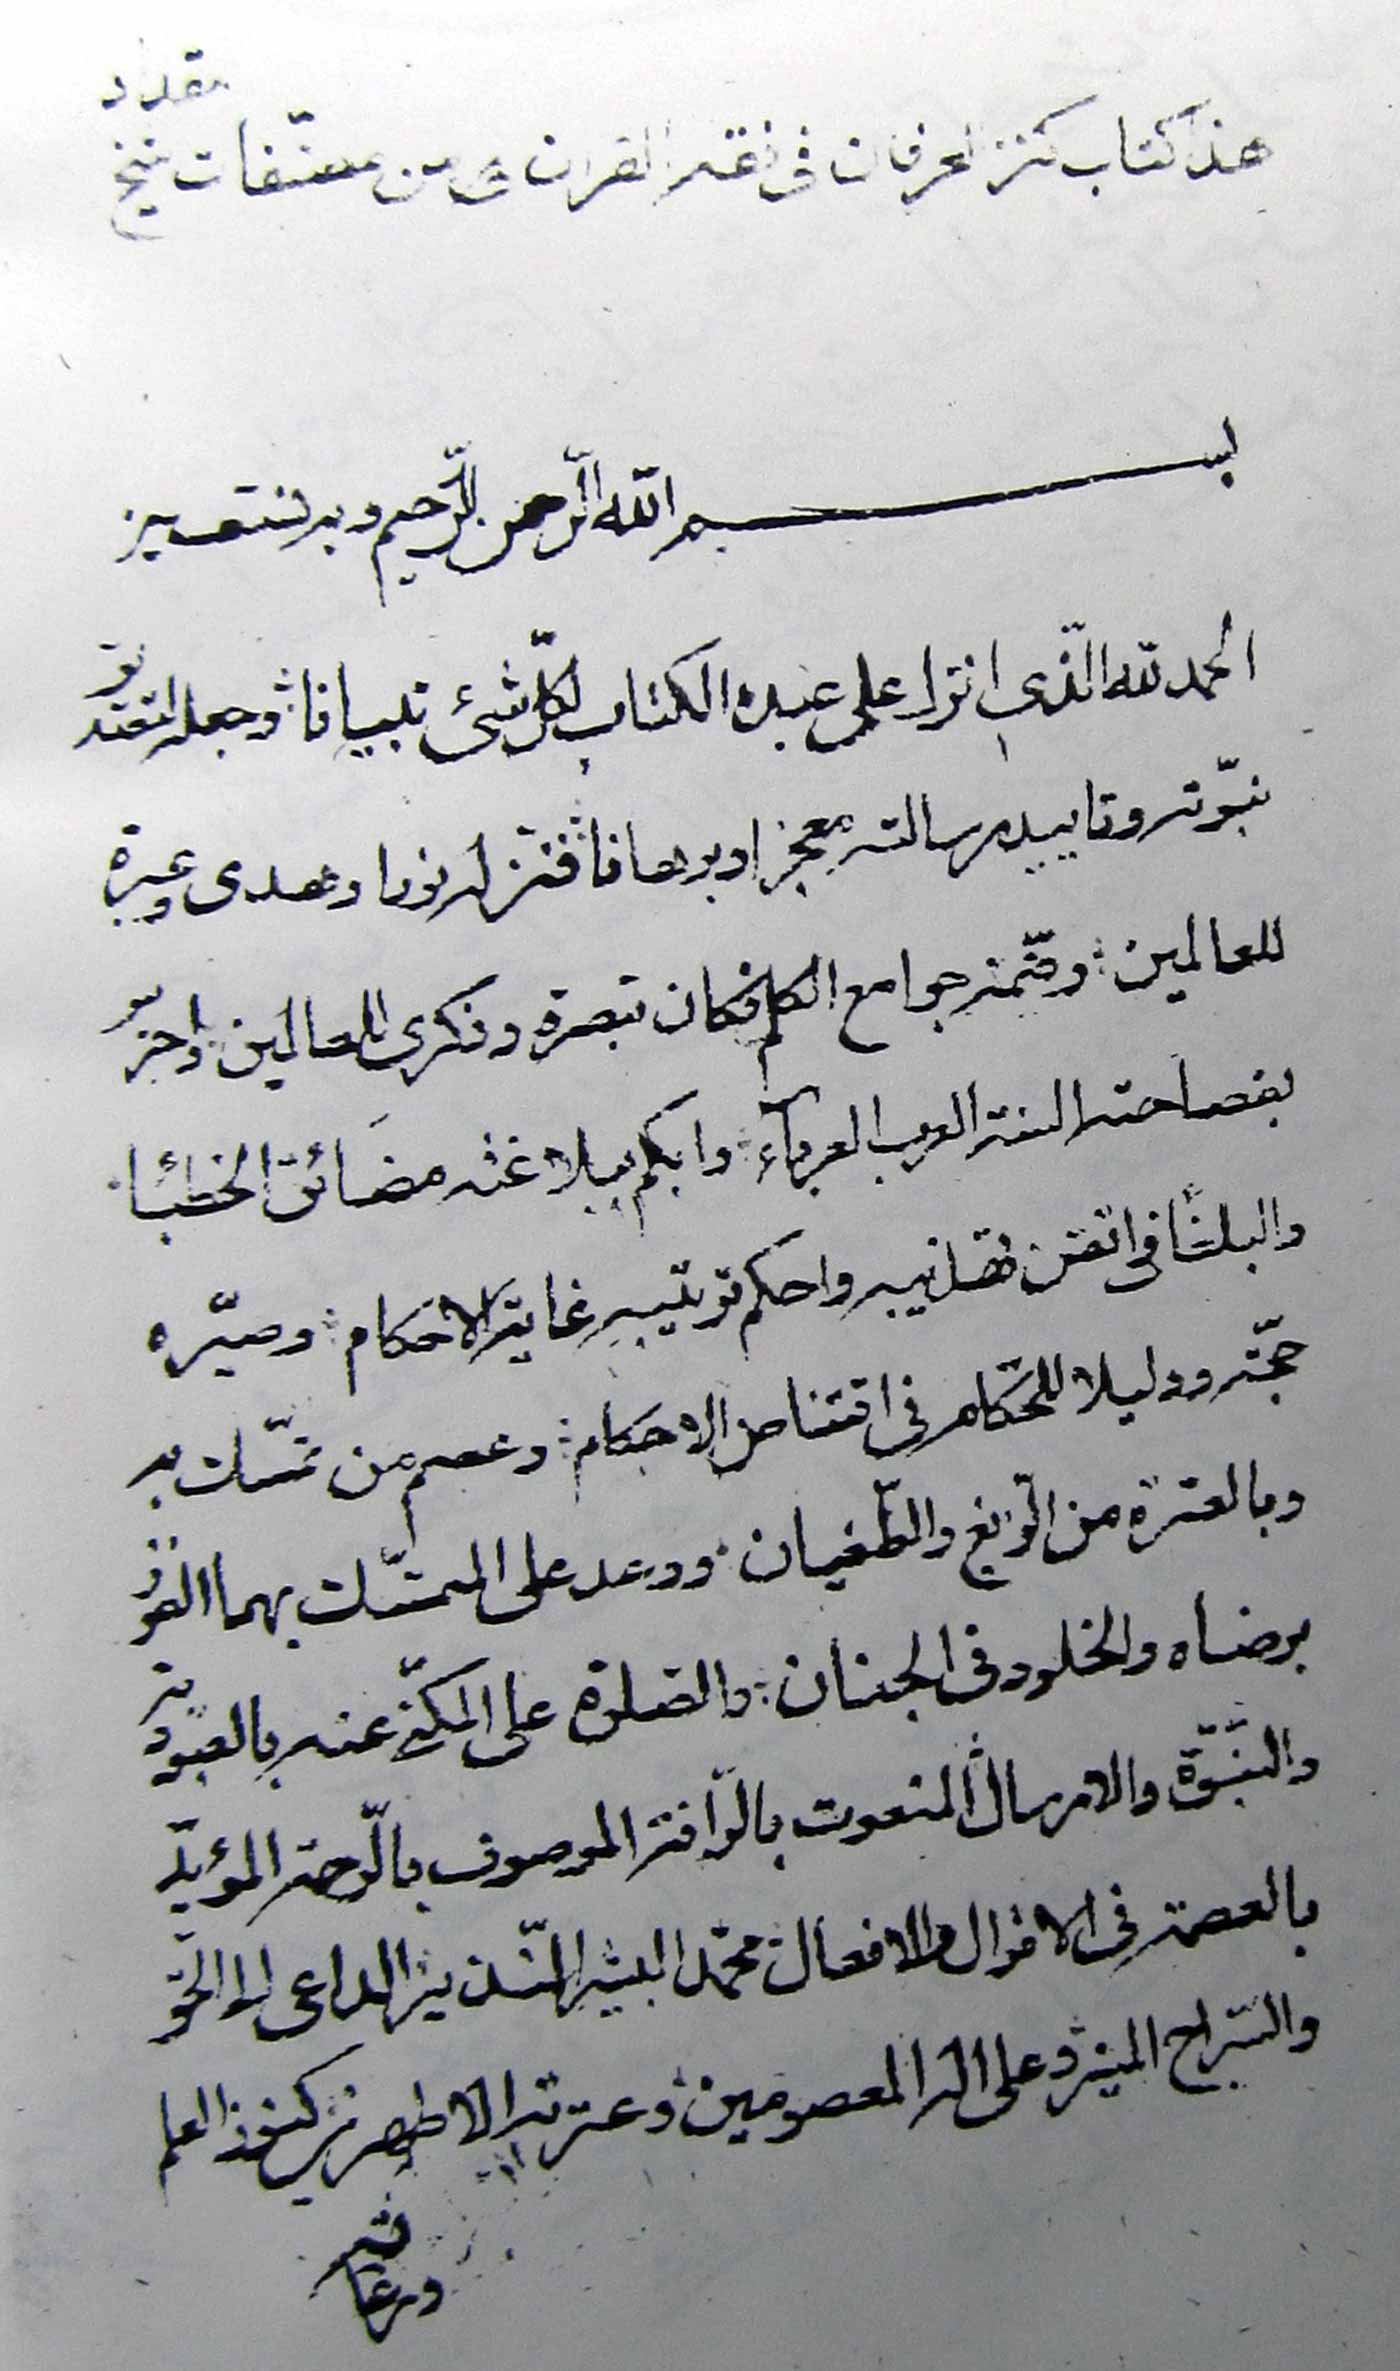 هذا كتاب كنز العرفان فى فقه القران من مصنفات شيخ
مقداد
بسم الله الرحمن الرحيم وبه نستعين
الحمد لله الذى انزل على عبده الكتاب لكل شئ تبيانا وجعله لتصديق
نبوته وتاييد رسالته معجزا وبرهانا فنزله نورا وهدى وعبرة
للعالمين وضمنه جوامع الكلم فكان تبصرة وذكرى للعالمين واخرس
بفصاحته السنة العرب العرباء وابكم ببلاغته مصائق الخطبا
والبلغا فاتقن تهذيبه واحكم ترتيبه غاية الاحكام وصيره
حجة ودليلا للحكام فى اقتناص الاحكام وعصم من تمسك به
وبالعترة من الزيغ والطغيان ووعد على التمسك بهما الفوز
برضاه والخلود فى الجنان والصلوة على المكنى عنه بالعبودية
والنبوة والارسال المنعوت بالرافة الموصوف بالرحمة المؤيد
بالعصمة فى الاقوال والافعال محمد البشير النذير الداعى الى الحق
والسراج المنير وعلى اله المعصومين وعترته الاطهرين كنوز العلم
ورعاته